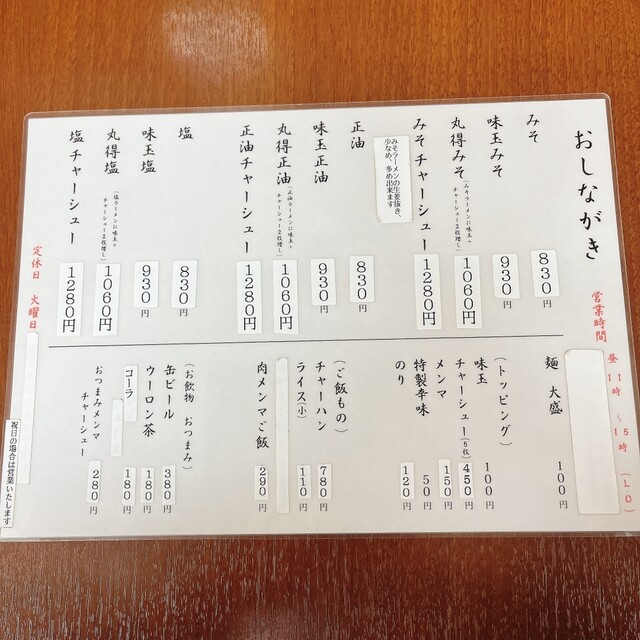 おしながき
営業時間 昼11時～15時(LO)
みそ 830円
味玉みそ 930円
丸得みそ(みそラーメンに味玉+チャーシュー2枚増し) 1060円
みそチャーシュー 1280円
みそラーメンの生姜抜き、
少なめ、多め出来ます
正油 830円
味玉正油 930円
丸得正油(正油ラーメンに味玉+チャーシュー2枚増し) 1060円
正油チャーシュー 1280円
塩 830円
味玉塩 930円
丸得塩(塩ラーメンに味玉+チャーシュー2枚増し) 1060円
塩チャーシュー 1280円
定休日 火曜日
麺 大盛 100円
(トッピング)
味玉 100円
チャーシュー(5枚) 450円
メンマ 150円
特製辛味 50円
のり 120円
(ご飯もの)
チャーハン 780円
ライス(小) 110円
肉メンマご飯 290円
(お飲物 おつまみ)
缶ビール 380円
ウーロン茶 180円
コーラ 180円
おつまみメンマ
チャーシュー 280円
祝日の場合は営業いたします